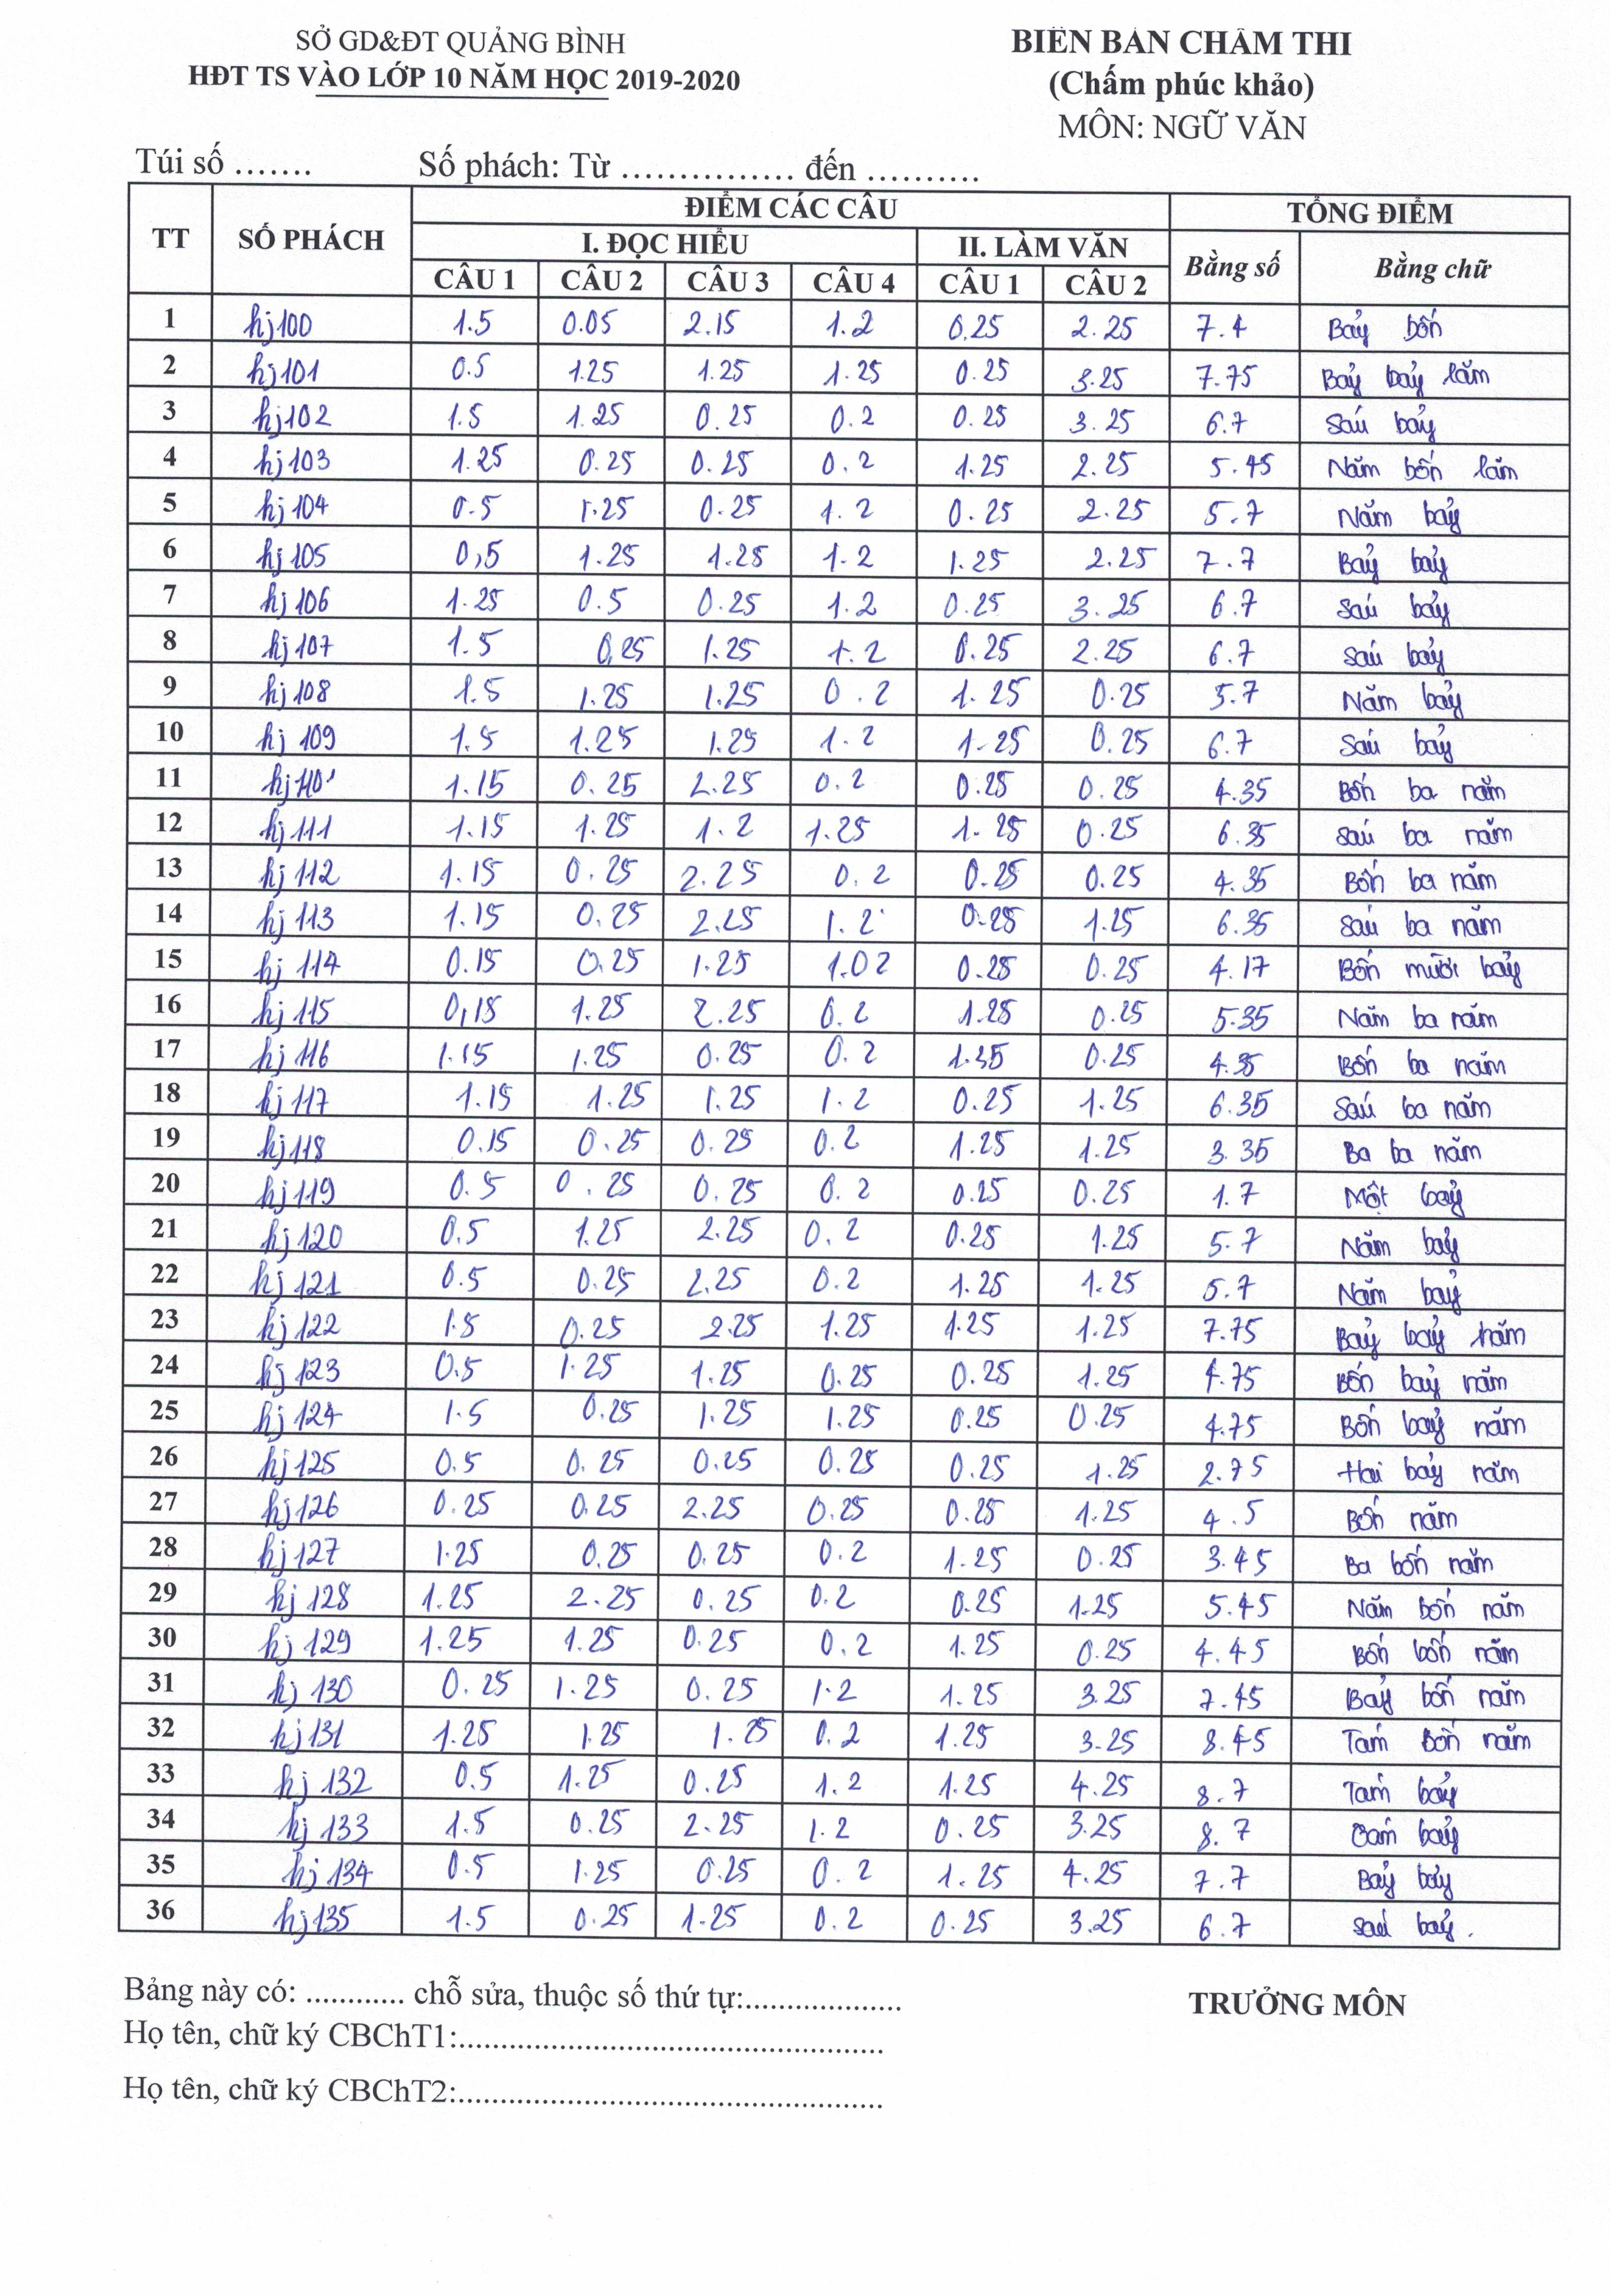 SỞ GD&ĐT QUẢNG BÌNH
HĐT TS VÀO LỚP 10 NĂM HỌC 2019-2020
BIÊN BẢN CHẤM THI
(Chấm phúc khảo)
MÔN: NGỮ VĂN
Túi số ....... Số phách: Từ ............... đến ..........
TT SỐ PHÁCH ĐIỂM CÁC CÂU TỔNG ĐIỂM
I. ĐỌC HIỂU II. LÀM VĂN Bằng số Bằng chữ
CÂU 1 CÂU 2 CÂU 3 CÂU 4 CÂU 1 CÂU 2
1 hj100 1.5 0.05 2.15 1.2 0.25 2.25 7.4 Bảy bốn
2 hj101 0.5 1.25 1.25 1.25 0.25 3.25 7.75 Bảy bảy lăm
3 hj102 1.5 1.25 0.25 0.2 0.25 3.25 6.7 Sáu bảy
4 hj103 1.25 0.25 0.25 0.2 1.25 2.25 5.45 Năm bốn lăm
5 hj104 0.5 1.25 0.25 1.2 0.25 2.25 5.7 Năm bảy
6 hj105 0,5 1.25 1.25 1.2 1.25 2.25 7.7 Bảy bảy
7 hj106 1.25 0.5 0.25 1.2 0.25 3.25 6.7 Sáu bảy
8 hj107 1.5 0,25 1.25 1.2 0.25 2.25 6.7 Sáu bảy
9 hj108 1.5 1.25 1.25 0.2 1.25 0.25 5.7 Năm bảy
10 hj109 1.5 1.25 1.25 1.2 1.25 0.25 6.7 Sáu bảy
11 hj110 1.15 0.25 2.25 0.2 0.25 0.25 4.35 Bốn ba năm
12 hj111 1.15 1.25 1.2 1.25 1.25 0.25 6.35 Sáu ba năm
13 hj112 1.15 0.25 2.25 0.2 0.25 0.25 4.35 Bốn ba năm
14 hj113 1.15 0.25 2.25 1.2 0.25 1.25 6.35 Sáu ba năm
15 hj114 0.15 0.25 1.25 1.02 0.25 0.25 4.17 Bốn mười bảy
16 hj115 0,15 1.25 2.25 0.2 1.25 0.25 5.35 Năm ba năm
17 hj116 1.15 1.25 0.25 0.2 1.25 0.25 4.35 Bốn ba năm
18 hj117 1.15 1.25 1.25 1.2 0.25 1.25 6.35 Sáu ba năm
19 hj118 0.15 0.25 0.25 0.2 1.25 1.25 3.35 Ba ba năm
20 hj119 0.5 0.25 0.25 0.2 0.25 0.25 1.7 Một bảy
21 hj120 0.5 1.25 2.25 0.2 0.25 1.25 5.7 Năm bảy
22 hj121 0.5 0.25 2.25 0.2 1.25 1.25 5.7 Năm bảy
23 hj122 1.5 0.25 2.25 1.25 1.25 1.25 7.75 Bảy bảy năm
24 hj123 0.5 1.25 1.25 0.25 0.25 1.25 4.75 Bốn bảy năm
25 hj124 1.5 0.25 1.25 1.25 0.25 0.25 4.75 Bốn bảy năm
26 hj125 0.5 0.25 0.25 0.25 0.25 1.25 2.75 Hai bảy năm
27 hj126 0.25 0.25 2.25 0.25 0.25 1.25 4.5 Bốn năm
28 hj127 1.25 0.25 0.25 0.2 1.25 0.25 3.45 Ba bốn năm
29 hj128 1.25 2.25 0.25 0.2 0.25 1.25 5.45 Năm bốn năm
30 hj129 1.25 1.25 0.25 0.2 1.25 0.25 4.45 Bốn bốn năm
31 hj130 0.25 1.25 0.25 1.2 1.25 3.25 7.45 Bảy bốn năm
32 hj131 1.25 1.25 1.25 0.2 1.25 3.25 8.45 Tám Bốn năm
33 hj132 0.5 1.25 0.25 1.2 1.25 4.25 8.7 Tám bảy
34 hj133 1.5 0.25 2.25 1.2 0.25 3.25 8.7 Tám bảy
35 hj134 0.5 1.25 0.25 0.2 1.25 4.25 7.7 Bảy bảy
36 hj135 1.5 0.25 1.25 0.2 0.25 3.25 6.7 Sáu bảy.
Bảng này có: ............ chỗ sửa, thuộc số thứ tự:...................
TRƯỞNG MÔN
Họ tên, chữ ký CBChT1:.....................................................
Họ tên, chữ ký CBChT2:.....................................................